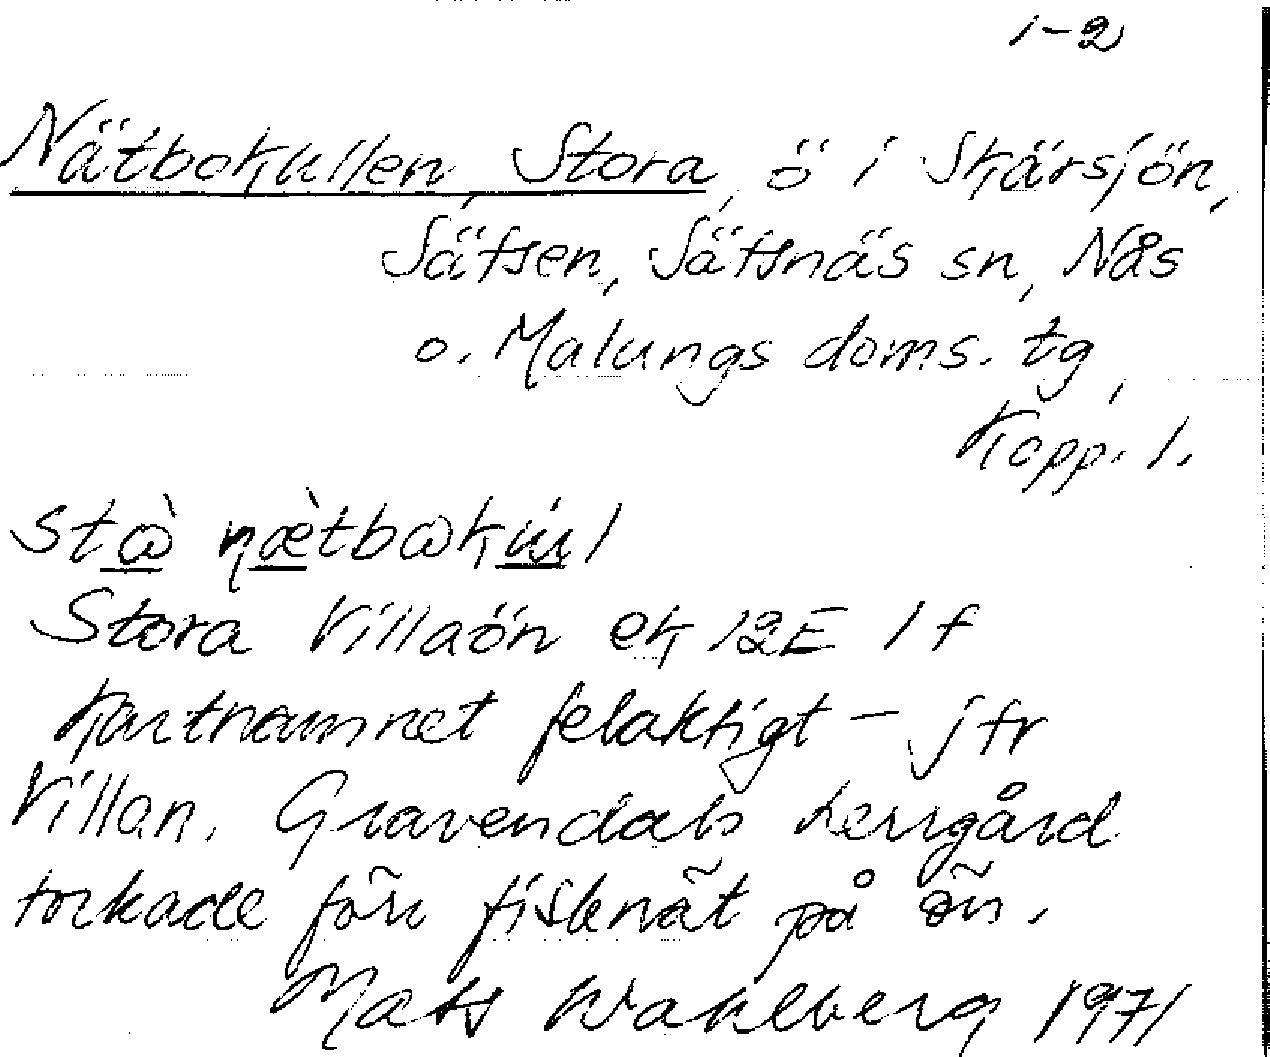 1-2
Nätbokullen, Stora, ö i Skärsjön,
Säfsen, Säfsnäs sn, Nås
o. Malungs doms. tg,
Kopp. l.
Stora Villaön ek 12E 1f
Kartnamnet felaktigt – jfr
Villan. Gravendals herrgård
torkade förr fisknät på ön.
Mats Wahlberg 1971